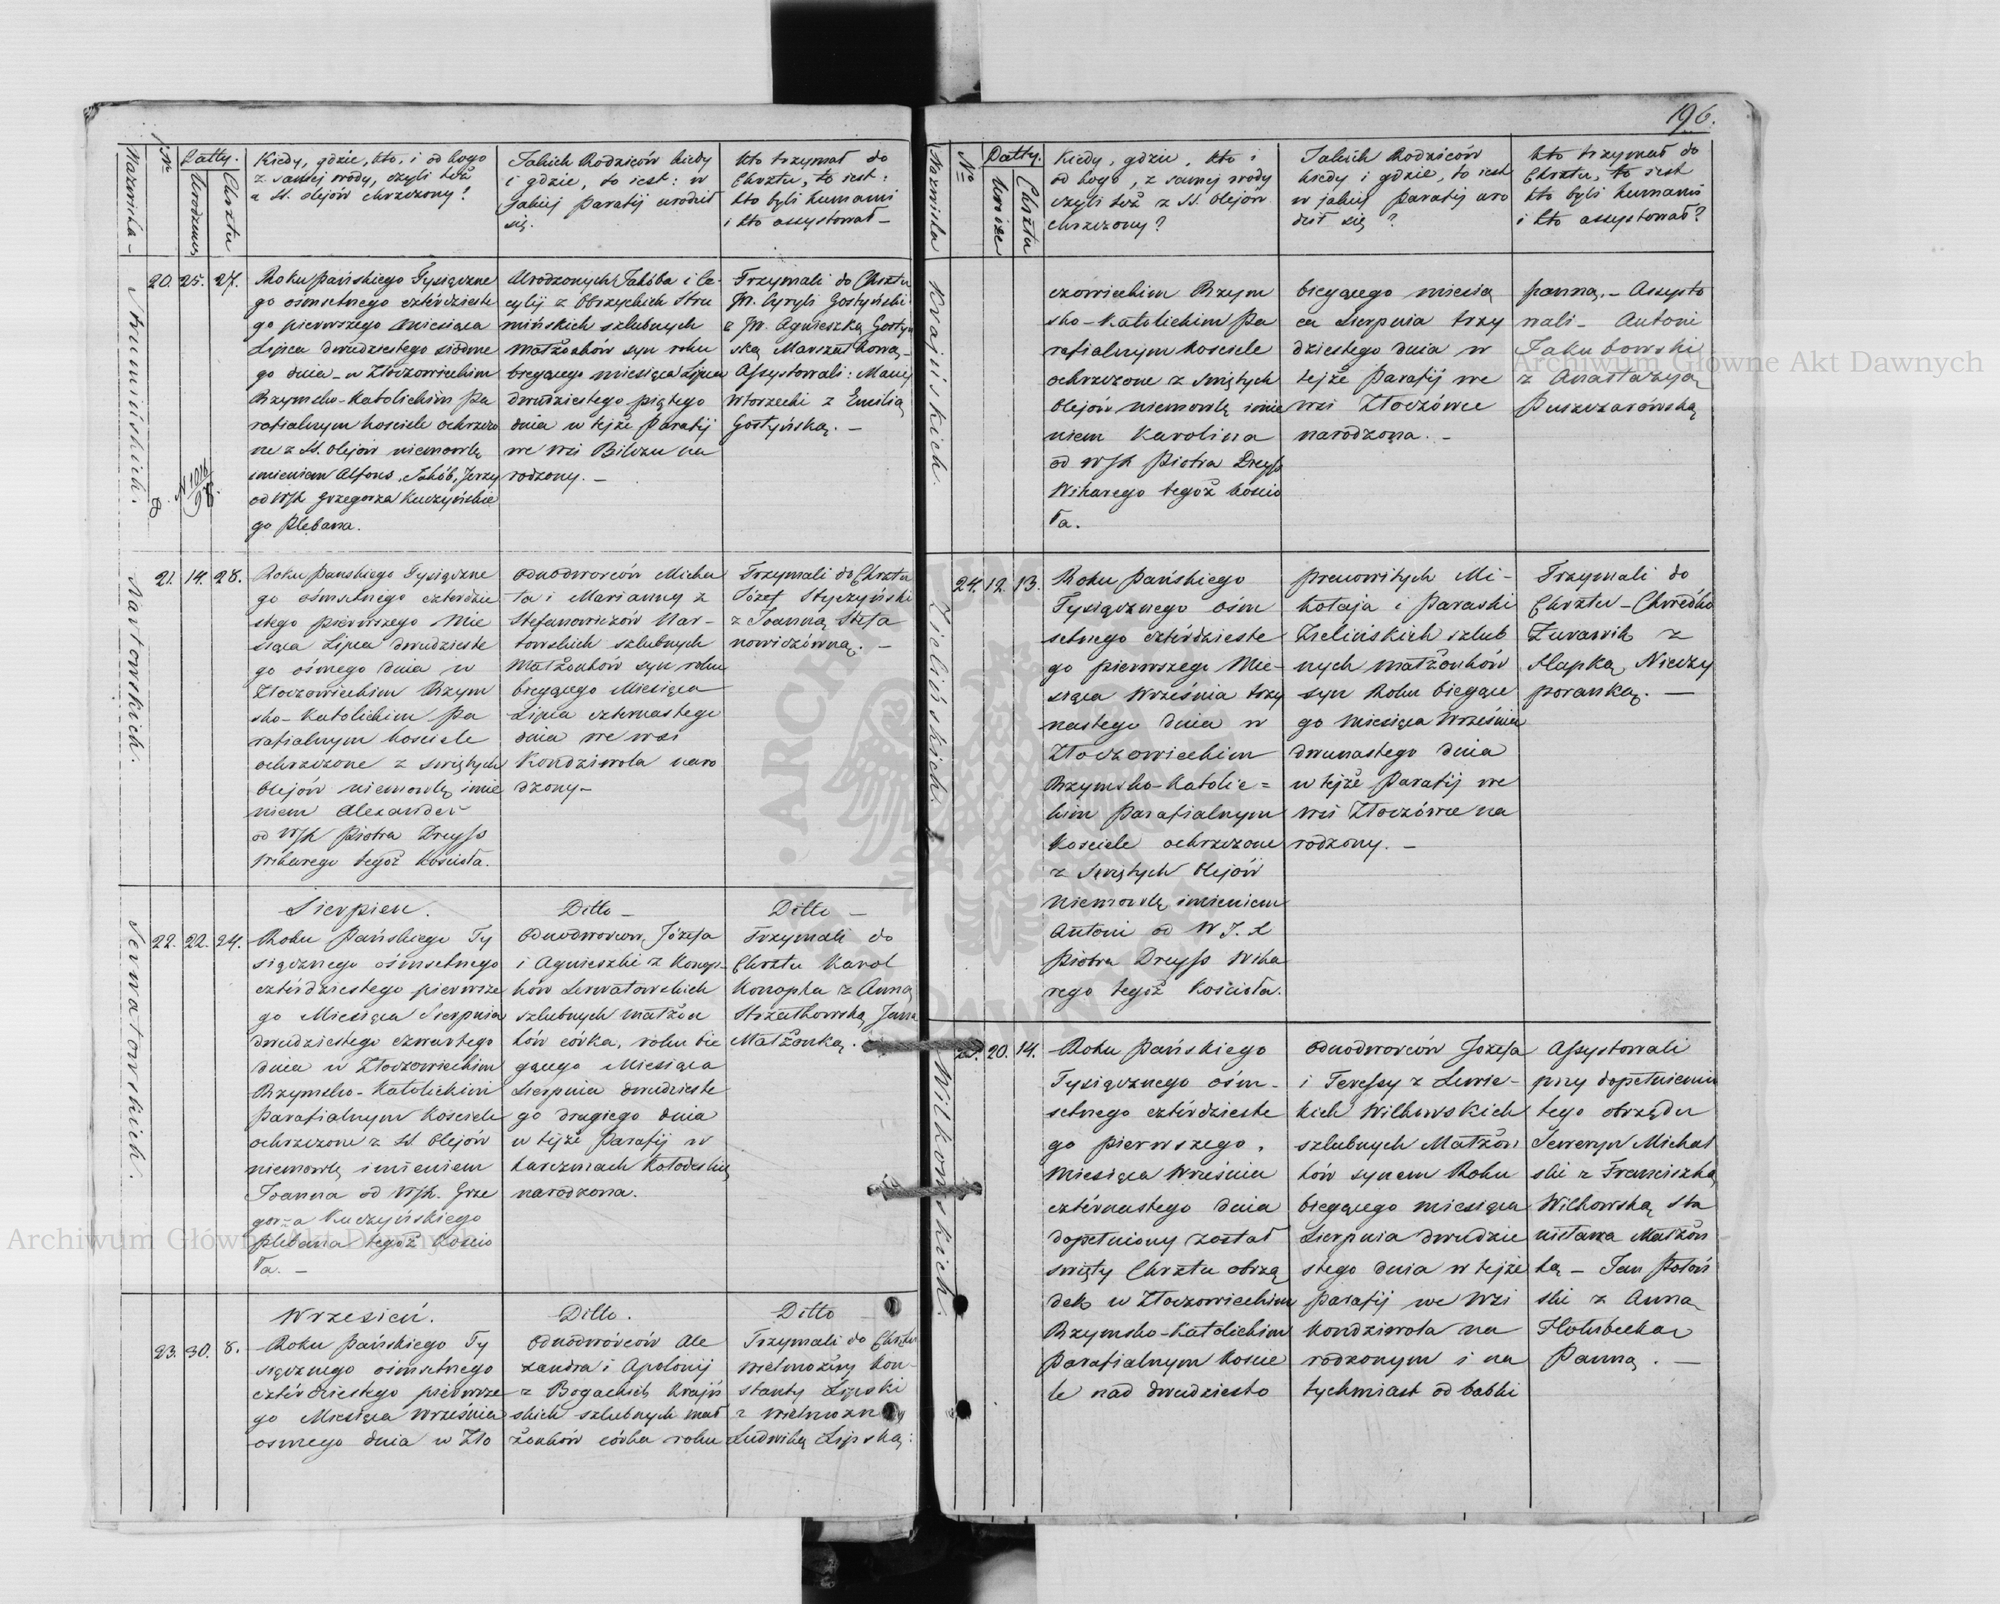 196.
Nazwiska
No
Datty.
Urodzenia
Chrztu
Kiedy, gdzie, kto, i od kogo
z samej wody, czyli też
z SS. olejów chrzczony?
Jakich Rodziców kiedy
i gdzie, to iest: w
jakiej Parafij urodził
się.
Kto trzymał do
Chrztu, to iest:
kto byli kumami
i kto assystował
Strumińskich.
20. 25. 27.
Roku Pańskiego Tysiączne
go ośmsetnego czterdzieste
go pierwszego miesiąca
Lipca dwudziestego siódme
go dnia w Złoczowieckim
Rzymsko-Katolickim Pa
rafialnym kosciele ochrzczo
ne z SS. olejów niemowlę
imieniem Alfons, Jakób, Jerzy
od WJX Grzegorza Kuczyńskie
go Plebana.
Urodzonych Jakóba i Ce
cylij z Obrzyckich Stru
mińskich szlubnych
Małżonków syn roku
bieżącego miesiąca Lipca
dwudziestego piątego
dnia w tejże Parafij
we wsi Bilczu na
rodzony. —
Trzymali do Chrztu
JW. Cyryli Gostyński
z JW. Agnieszką Gostyń
ską Marszałkową
Assystowali: Maciej
Wtorzecki z Emilią
Gostyńską. —
Nartowskich.
21. 14. 28.
Roku Panskiego Tysiączne
go ośmsetnego czterdzie
stego pierwszego Mie
siąca Lipca dwudzieste
go osmego dnia w
Złoczowieckim Rzym
sko-Katolickim Pa
rafialnym kosciele
ochrzczone z swiętych
Olejów niemowlę imie
niem Alexander
od WJX Piotra Dreyss
Wikarego tegoż Kościoła.
Odnodworców Micha
ła i Marianny z
Stefanowiczów Nar-
towskich szlubnych
Małżonków syn roku
bieżącego Miesiąca
Lipca czternastego
dnia we wsi
Kondziwola naro
dzony —
Trzymali do Chrztu
Józef Styczyński
z Joanną Stefa
nowiczówną. —
Serwatowskich.
Sierpień.
Ditto —
Ditto —
22. 22. 24.
Roku Pańskiego Ty
siącznego ośmsetnego
czterdziestego pierwsze
go Miesiąca Sierpnia
dwudziestego czwartego
dnia w Złoczowieckim
Rzymsko-Katolickim
Parafialnym Kościele
ochrzczone z SS Olejów
niemowlę imieniem
Joanna od WJX. Grze
gorza Kuczyńskiego
plebana tegoż kościo
ła. —
Odnodworców Józefa
i Agnieszki z Konop-
ków Serwatowskich
szlubnych małżon
ków córka, roku bie
żącego Miesiąca
Sierpnia dwudzieste
go drugiego dnia
w tejże Parafij w
karczmach
narodzona.
Trzymali do
Chrztu Karol
Konopka z Anną
Strzałkowską Jana
Małżonką.
Wrzesień.
Ditto.
Ditto
23. 30. 8.
Roku Pańskiego Ty
siącznego ośmsetnego
czterdziestego pierwsze
go Miesiąca Września
osmego dnia w Zło
Odnodworców Ale
xandra i Apolonij
z Bogackich Krajiń
skich szlubnych mał
żonków córka roku
Trzymali do Chrztu
wielmożny Kon-
stanty Lipski
z wielmożną
Ludwiką Lipską:
Nazwiska
No
Datty.
Chrztu
Kiedy, gdzie, kto i
od kogo, z samej wody
czyli też z SS. olejów
chrzczony?
Jakich Rodziców
kiedy i gdzie, to iest
w jakiej Parafij uro
dził się?
Kto trzymał do
Chrztu, to iest
kto byli kumami
i kto assystował?
Krajińskich.
czowieckim Rzym
sko-Katolickim Pa
rafialnym kosciele
ochrzczone z swiętych
Olejów niemowlę imie
niem Karolina
od WJX Piotra Dreyss
Wikarego tegoż kościo
ła.
bieżącego miesią
ca Sierpnia trzy
dziestego dnia w
tejże Parafij we
wsi Złoczówce
narodzona. —
panną. — Assysto
wali — Antoni
Jakubowski
z Anastazyą
Puszczarówską
Zielińskich.
24. 12. 13.
Roku Pańskiego
Tysiącznego ośm
setnego czterdzieste
go pierwszego Mie-
siąca Września trzy
nastego dnia w
Złoczowieckim
Rzymsko-Katolic=
kim Parafialnym
Kosciele ochrzczone
z Swiętych Olejów
niemowlę imieniem
Antoni od W J. X
Piotra Dreyss Wika
rego tegoż Kościoła.
pracowitych Mi-
kołaja i Paraski
Zielińskich szlub
nych małżonków
syn Roku bieżące
go miesiąca Września
dwunastego dnia
w tejże Parafij we
wsi Złoczówce na
rodzony. —
Trzymali do
Chrztu — Chwedko
Żurawik z
Hapką Nieczy
poranką. —
Wilkowskich.
20. 14.
Roku Pańskiego
Tysiącznego ośm-
setnego czterdzieste
go pierwszego,
Miesiąca Września
czternastego dnia
dopełniony został
swięty Chrztu obrzą
dek w Złoczowieckim
Rzymsko-Katolickim
Parafialnym Koscie
le nad dwudziesto
Odnodworców Józefa
i Teressy z
kich Wilkowskich
szlubnych Małżon
ków synem Roku
bieżącego miesiąca
Sierpnia dwudzie
stego dnia w tejże
Parafij we wsi
Kondziwola na
rodzonym i na
tychmiast od babki
Assystowali
przy dopełnieniu
tego obrzędu
Seweryn Michal
ski z Franciszką
Wilkowską Sta
nisława Małżon
ką — Jan
ski z Anną
Hołubecką
Panną. —
Archiwum Główne Akt Dawnych
Archiwum Główne Akt Dawnych